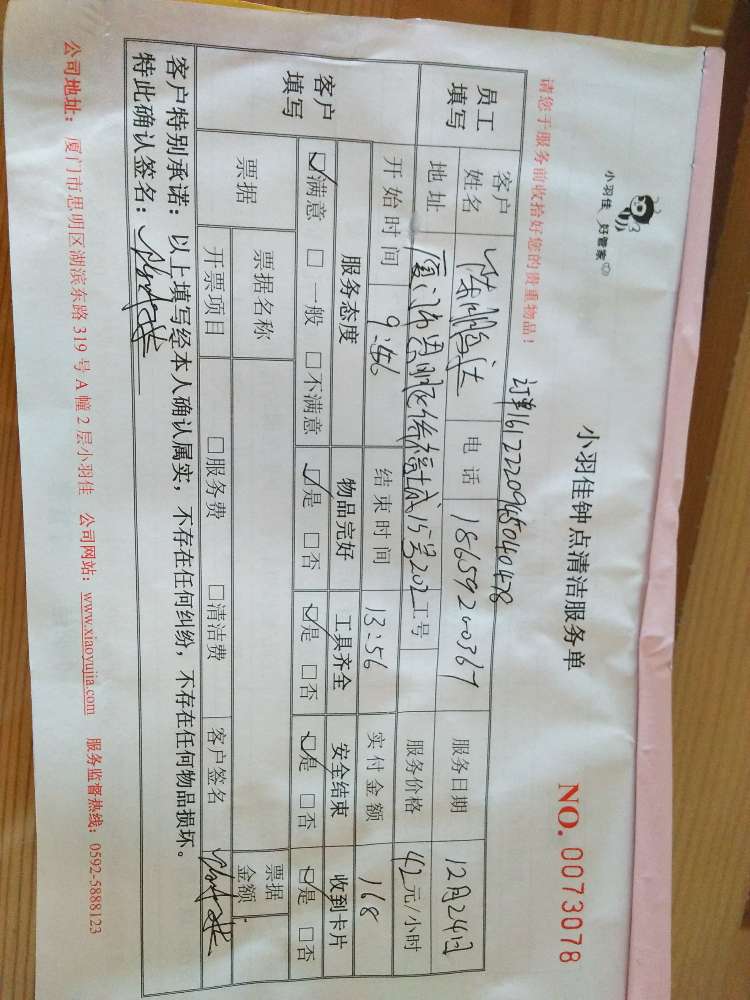 小羽佳 好管家
小羽佳钟点清洁服务单
NO. 0073078
请您于服务前收拾好您的贵重物品！
订单1612220945040478
员工填写
客户姓名
电话 18659200367
服务日期 12月24日
地址 厦门市思明区
15号202
工号
服务价格 42元/小时
客户填写
开始时间 9:46
结束时间 13:56
实付金额 168
服务态度 物品完好 工具齐全 安全结束 收到卡片
☑满意 □一般 □不满意 ☑是 □否 ☑是 □否 ☑是 □否 ☑是 □否
票据
票据名称
票据金额
开票项目 □服务费 □清洁费 客户签名
客户特别承诺：以上填写经本人确认属实，不存在任何纠纷，不存在任何物品损坏。
特此确认签名：
公司地址：厦门市思明区湖滨东路319号A幢2层小羽佳 公司网站：www.xiaoyujia.com 服务监督热线：0592-5888123